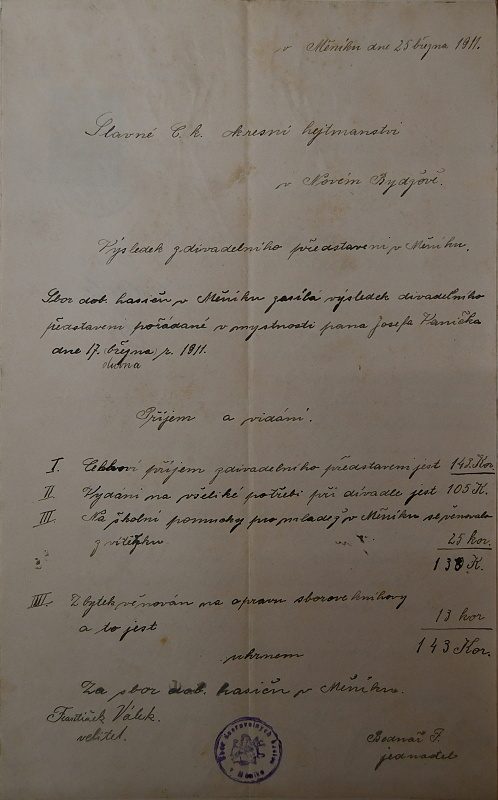 v Měníku dne 25 března 1911.
Slavné C. k. okresní hejtmanství
v Novém Bydžově.
Výsledek zdivadelního představeni v Měníku.
Sbor dob. hasičů v Měníku zasílá výsledek divadelního
představeni pořádané v mystnosti pana Josefa Vanička
dne 17. (března) r. 1911.
dubna
Příjem a vidání.
I. Celkoví příjem zdivadelního představeni jest 143 Kor
II. Vydáni na všeliké potřebi při divadle jest 105 K.
III. Na školni pomucky pro mladež v Měniku se věnovalo
z vitěžku 25 kor.
130 K.
IIII. Zbytek věnován na opravu sborove knihovy
a to jest 13 kor
uhrnem 143 Kor.
Za sbor dob. hasičů v Měníku.
František Válek.
velitel.
Sbor dobrovolných hasičů
v Měníku
Bednář F.
jednatel